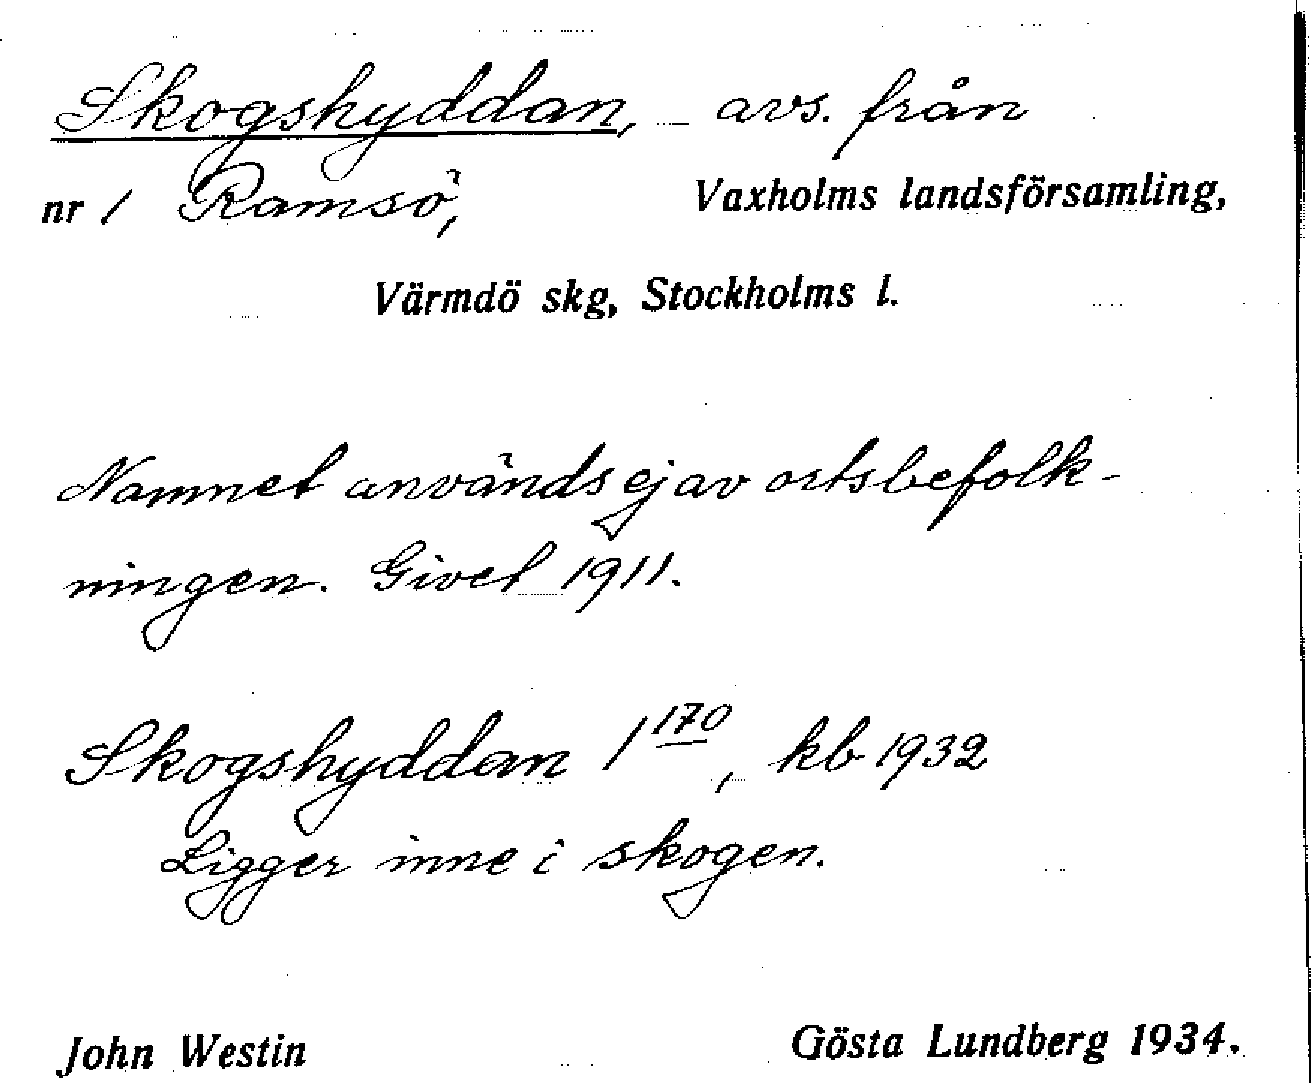 Skogshyddan, avs. från
nr 1 Ramsö, Vaxholms landsförsamling,
Värmdö skg, Stockholms l.
Namnet används ej av ortsbefolk-
ningen. Givet 1911.
Skogshyddan 1 170, kb 1932
Ligger inne i skogen.
John Westin Gösta Lundberg 1934.